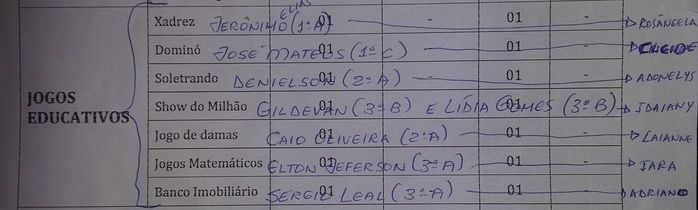 JOGOS EDUCATIVOS
Xadrez JERÔNIMO ELIAS (1ª A) 01 - 01 - ROSÂNGELA
Dominó JOSÉ MATEUS (1º C) 01
Soletrando DENIELSON (2º A) 01 - 01 - ADONELYS
Show do Milhão GILDEVAN (3º B) E LÍDIA GOMES (3º B) 01 01 - IDAIANY
Jogo de damas CAIO OLIVEIRA (2º A) 01 - 01 - LAIANNE
Jogos Matemáticos ELTON JEFERSON (3º A) 01 - 01 - IARA
Banco Imobiliário SERGIO LEAL (3º A) 01 - 01 - ADRIANO